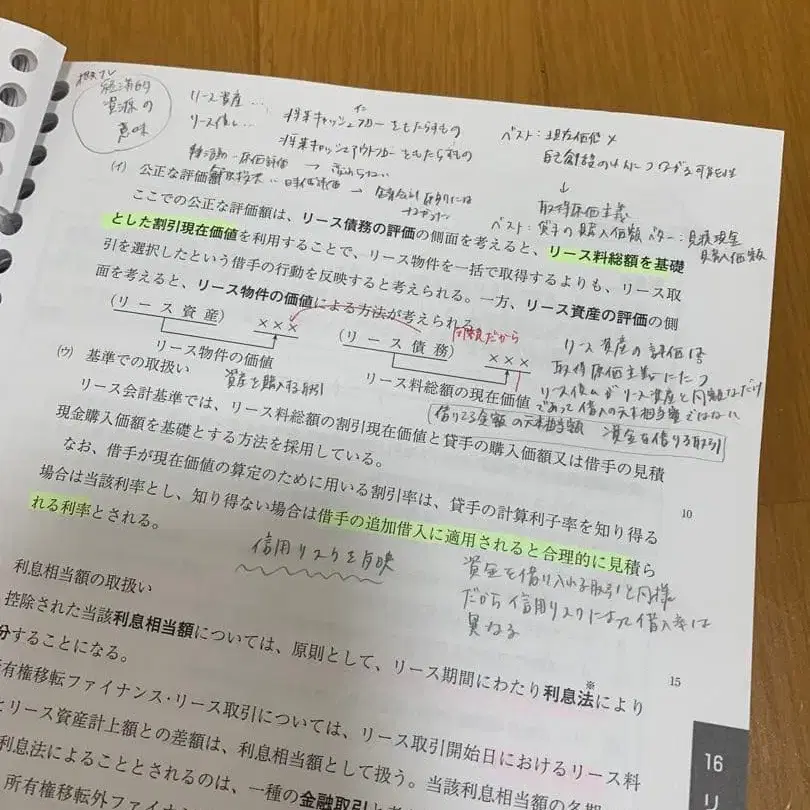 経済的
資源の
意味
リース資産… 将来キャッシュフローをもたらすもの
リース債務… 将来キャッシュアウトフローをもたらすもの
ベスト:現在価値 ×
取得原価主義
(イ) 公正な評価額
ここでの公正な評価額は、リース債務の評価の側面を考えると、リース料総額を基礎
とした割引現在価値を利用することで、リース物件を一括で取得するよりも、リース取
引を選択したという借手の行動を反映すると考えられる。一方、リース資産の評価の側
面を考えると、リース物件の価値による方法が考えられる。
同額だから
(リース資産) ××× (リース債務) ×××
リース物件の価値 リース料総額の現在価値
資産を購入する取引
リース資産の評価は
取得原価主義にたつ
リース債務がリース資産と同額なだけ
であって借入の元本相当額ではない
借りてる金額の元本相当額 資金を借りる取引
(ウ) 基準での取扱い
リース会計基準では、リース料総額の割引現在価値と貸手の購入価額又は借手の見積
現金購入価額を基礎とする方法を採用している。
なお、借手が現在価値の算定のために用いる割引率は、貸手の計算利子率を知り得る
10
場合は当該利率とし、知り得ない場合は借手の追加借入に適用されると合理的に見積ら
れる利率とされる。
信用リスクを反映
資金を借り入れる取引と同様
だから信用リスクによって借入率は
異なる
利息相当額の取扱い
控除された当該利息相当額については、原則として、リース期間にわたり利息法※により
15
分することになる。
有権移転ファイナンス・リース取引については、リース取引開始日におけるリース料
とリース資産計上額との差額は、利息相当額として扱う。当該利息相当額の各期
利息法によることとされるのは、一種の金融取引と
所有権移転外ファイナンス
16
リ